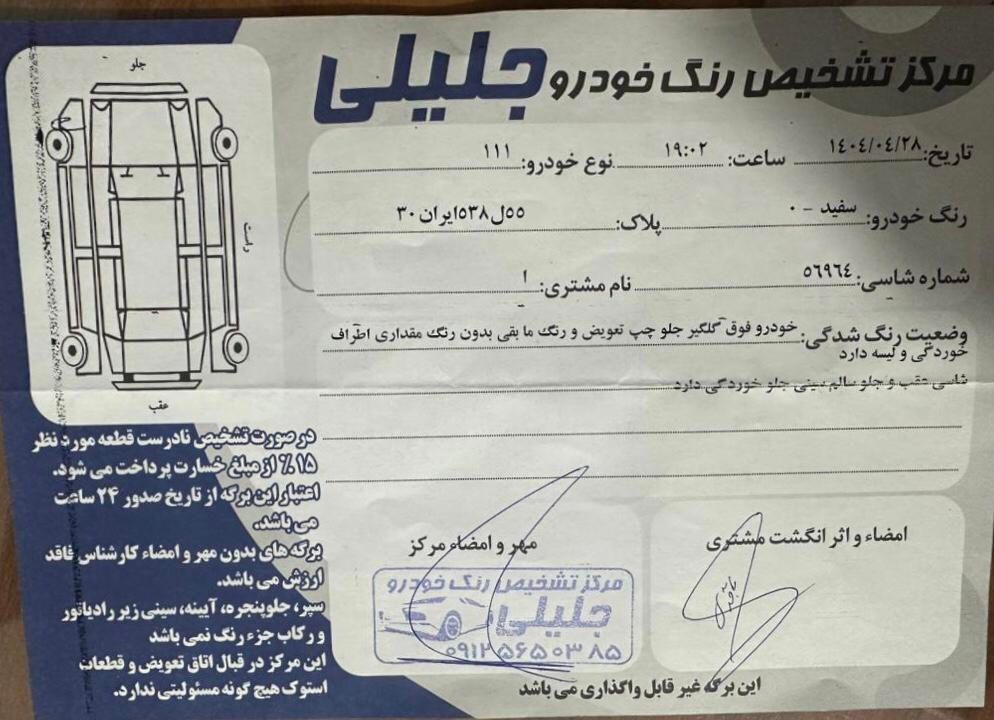 مرکز تشخیص رنگ خودرو جلیلی
تاریخ: ۱٤۰٤/۰٤/۲۸ ساعت: ۱۹:۰۲ نوع خودرو: ۱۱۱
رنگ خودرو: سفید - ۰ پلاک: ۵۵ل۵۳۸ایران۳۰
شماره شاسی: ۵٦۹٦٤ نام مشتری: ا
وضعیت رنگ شدگی: خودرو فوق گلگیر جلو چپ تعویض و رنگ ما بقی بدون رنگ مقداری اطراف
خوردگی و لیسه دارد
شاسی عقب و جلو سالم سینی جلو خوردگی دارد
جلو
راست
عقب
درصورت تشخیص نادرست قطعه مورد نظر
۱۵٪ از مبلغ خسارت پرداخت می شود.
اعتبار این برگه از تاریخ صدور ۲۴ ساعت
می باشد.
برگه های بدون مهر و امضاء کارشناس فاقد
ارزش می باشد.
سپر، جلوپنجره، آیینه، سینی زیر رادیاتور
و رکاب جزء رنگ نمی باشد
این مرکز در قبال اتاق تعویض و قطعات
استوک هیچ گونه مسئولیتی ندارد.
امضاء و اثر انگشت مشتری
مهر و امضاء مرکز
مرکز تشخیص رنگ خودرو
جلیلی
۰۹۱۲۵۶۵۰۳۸۵
این برگه غیر قابل واگذاری می باشد